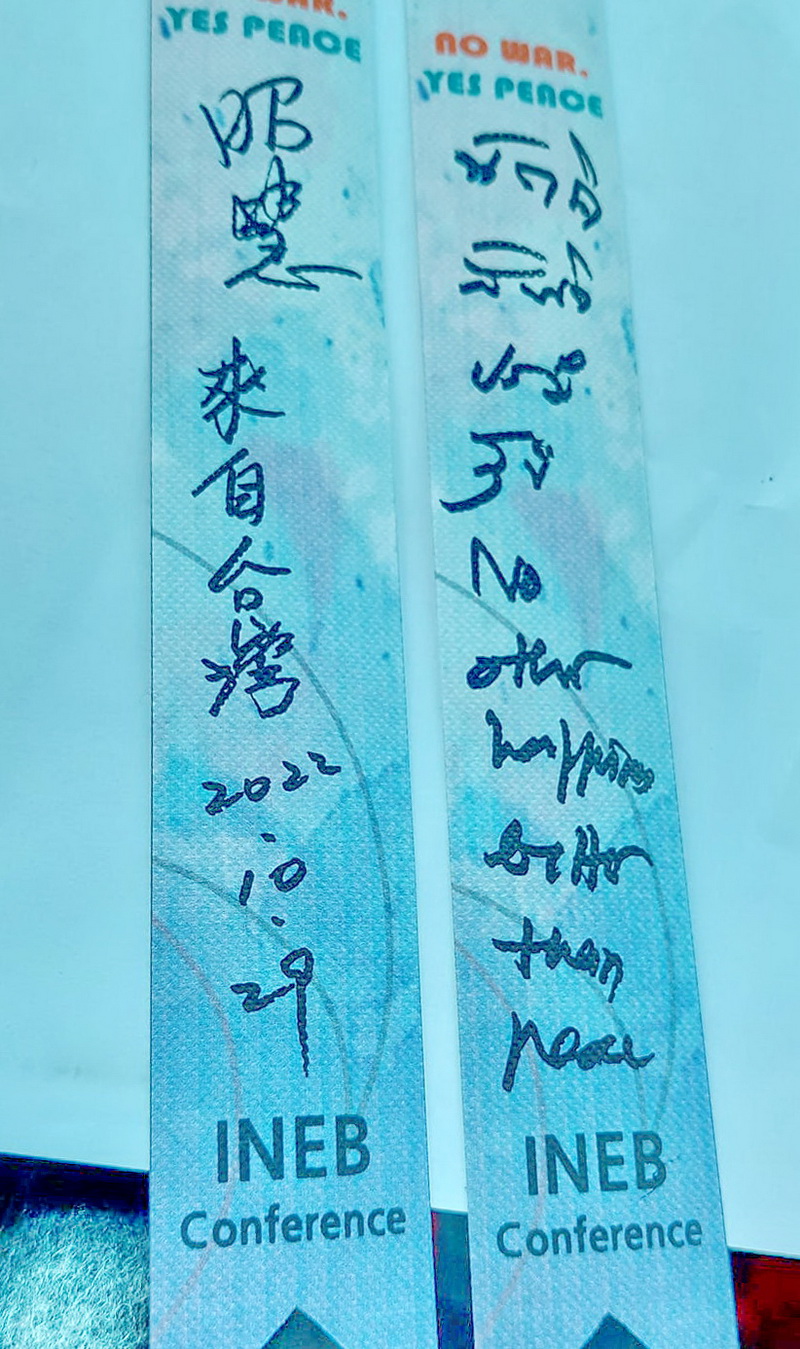 WAR.
YES PEACE
昭慧
來自台灣
2022
.10
.29
INEB
Conference
NO WAR.
YES PEACE
No
other
happiness
better
than
peace
INEB
Conference